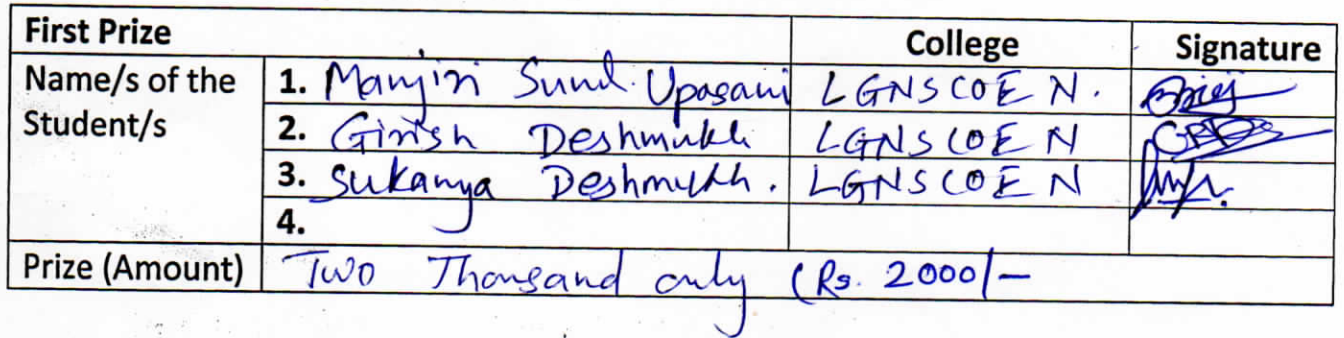 First Prize College Signature
Name/s of the Student/s
1. Manjiri Sunil Upasani LGNSCOE N.
2. Girish Deshmukh LGNSCOE N
3. Sukanya Deshmukh. LGNSCOE N
4.
Prize (Amount) Two Thousand only (Rs. 2000/-